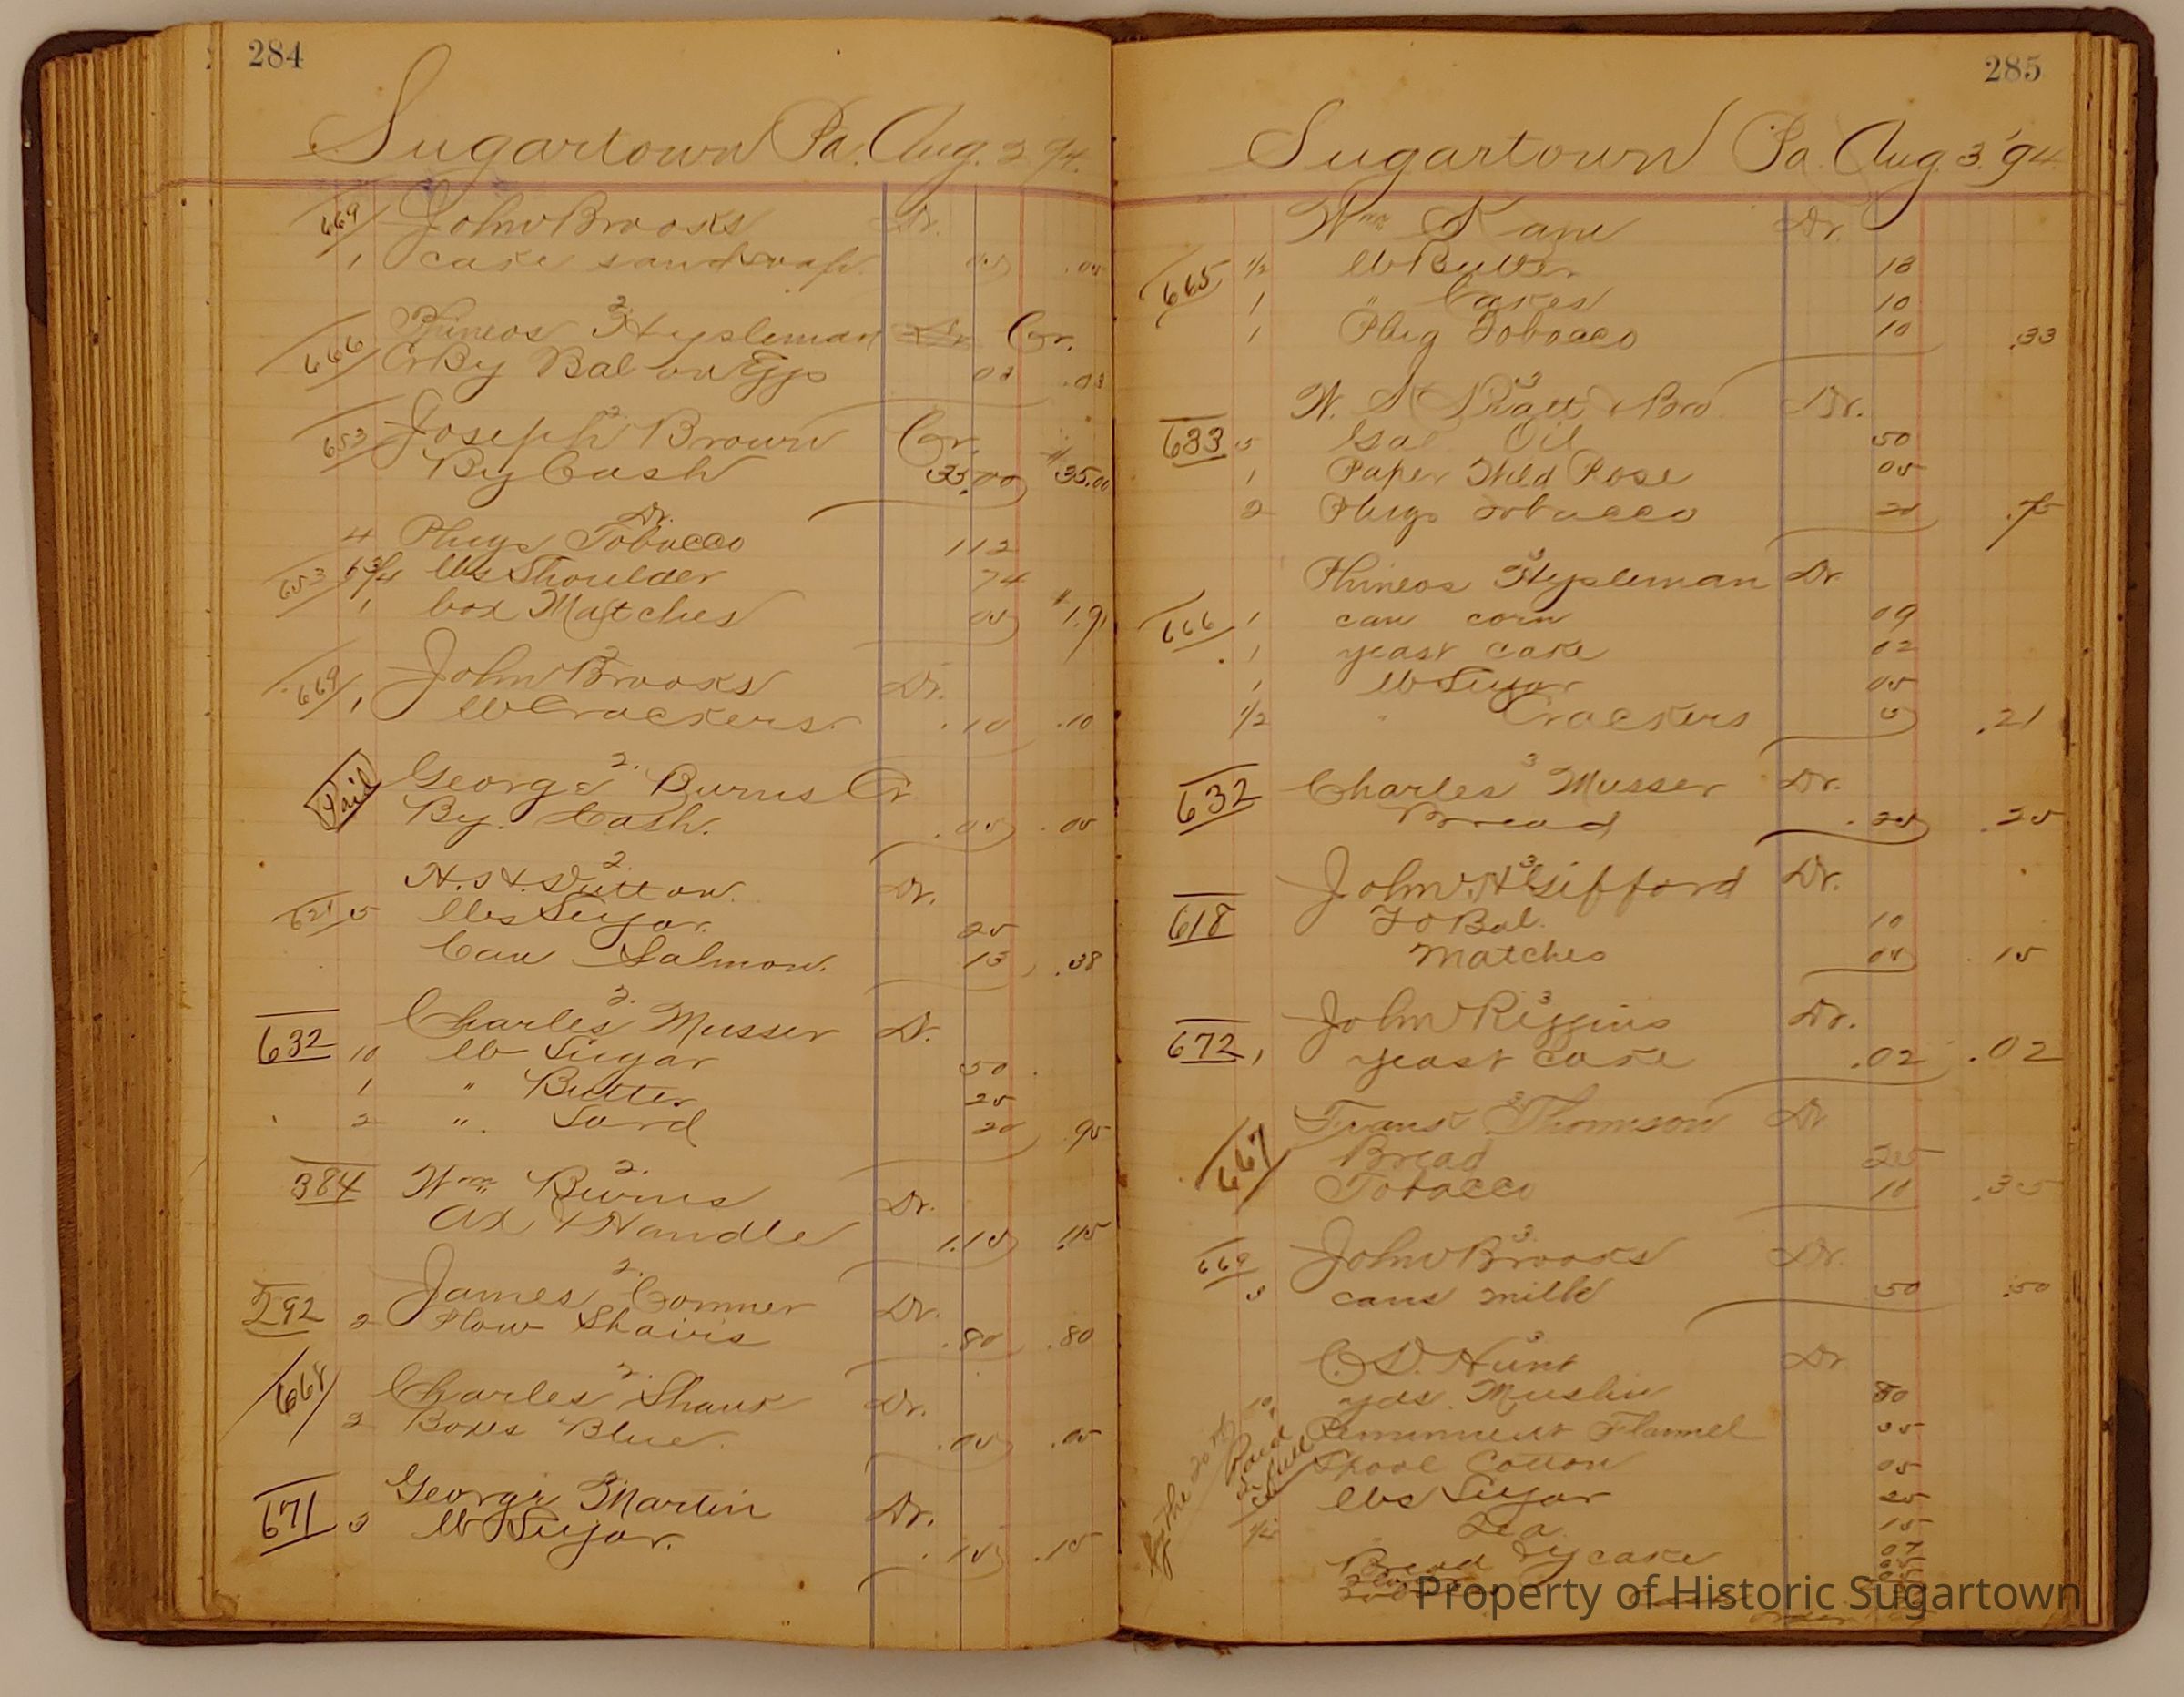 284
Sugartown Pa. Aug. 2 94.
669 John Brooks Dr.
1 cake sandsoap. 05 .05
2
666 Phineos Hysleman Dr Cr.
Cr By Bal on Eggs 03 .03
2
653 Joseph Brown Cr.
By Cash 35.00 $35.00
Dr.
4 Plugs Tobacco 112
653 6 3/4 lbs Shoulder 74
1 box Matches 05 $1.91
2
669 John Brooks Dr.
1 lb Crackers. .10 .10
2.
Paid George Burns Cr
By. Cash. .05 .05
2.
H. H. Dutton. Dr.
621 5 lbs Sugar. 25
Can Salmon. 13 .38
2.
632 Charles Musser Dr.
10 lb Sugar 50
1 " Butter 25
2 " Lard 20 95
2.
384 Wm Burns Dr.
Ax & Handle 1.15 1.15
2.
James Conner Dr.
292 2 Plow Shairs .80 .80
2.
668 Charles Shank Dr.
2 Boxes Blue. .05 .05
671 George Martin Dr.
3 lb Sugar. .15 .15
285
Sugartown Pa. Aug. 3. '94.
Wm Kane Dr.
665 1/2 lb Butter 13
1 " Cakes 10
1 Plug Tobacco 10 .33
3
W. S. Pratt & Bro Dr.
633 5 Gal Oil 50
1 Paper Wild Rose 05
2 Plugs Tobacco 20 .75
3
Phineos Hysleman Dr.
666 1 can corn 09
1 yeast cake 02
1 lb Sugar 05
1/2 " Crackers 5 .21
3
632 Charles Musser Dr.
Bread .25 .25
3
John H Gifford Dr.
618 To Bal. 10
Matches 05 .15
3
John Riggins Dr.
672 1 yeast cake .02 .02
3
Frank Thomson Dr
667 Bread 25
Tobacco 10 .35
3
669 John Brooks Dr.
5 cans milk 50 .50
3
C. D. Hunt Dr
10 yds. Muslin 80
Remnant Flannel 35
Spool Cotton 05
lbs Sugar 25
1/4 Tea 15
Bread
Paid in full
by the 20th
Property of Historic Sugartown